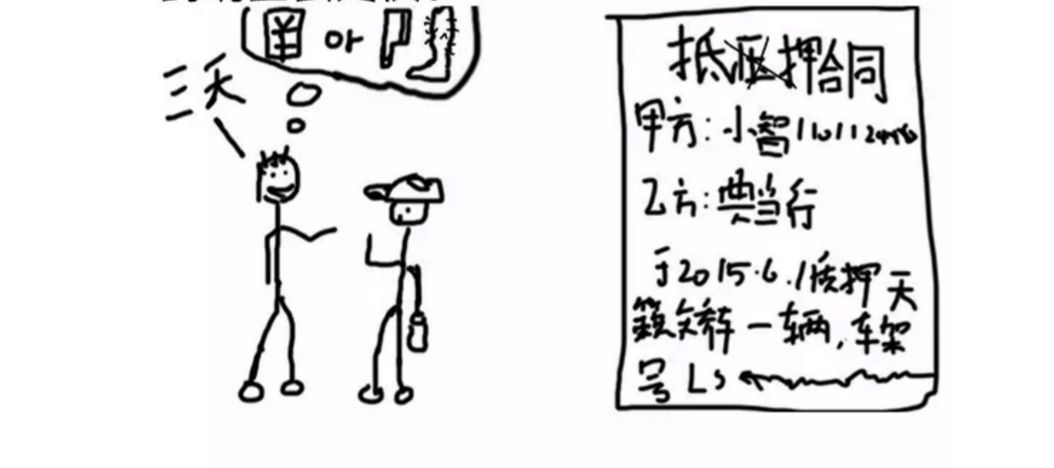 ¥ or
三天
抵押合同
甲方：小智
乙方：典当行
于2015.6.1质押天
籁轿车一辆，车架
号LS